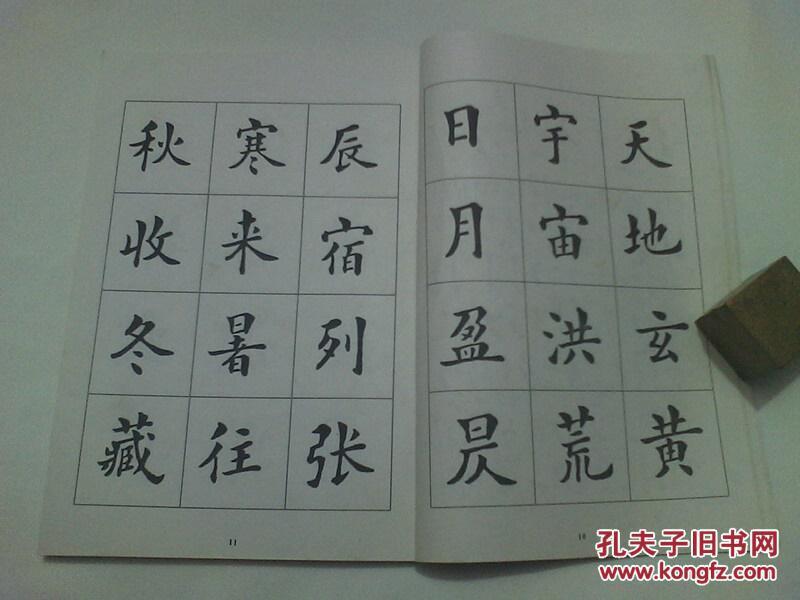 天地玄黄
宇宙洪荒
日月盈昃
10
辰宿列张
寒来暑往
秋收冬藏
11
孔夫子旧书网
www.kongfz.com